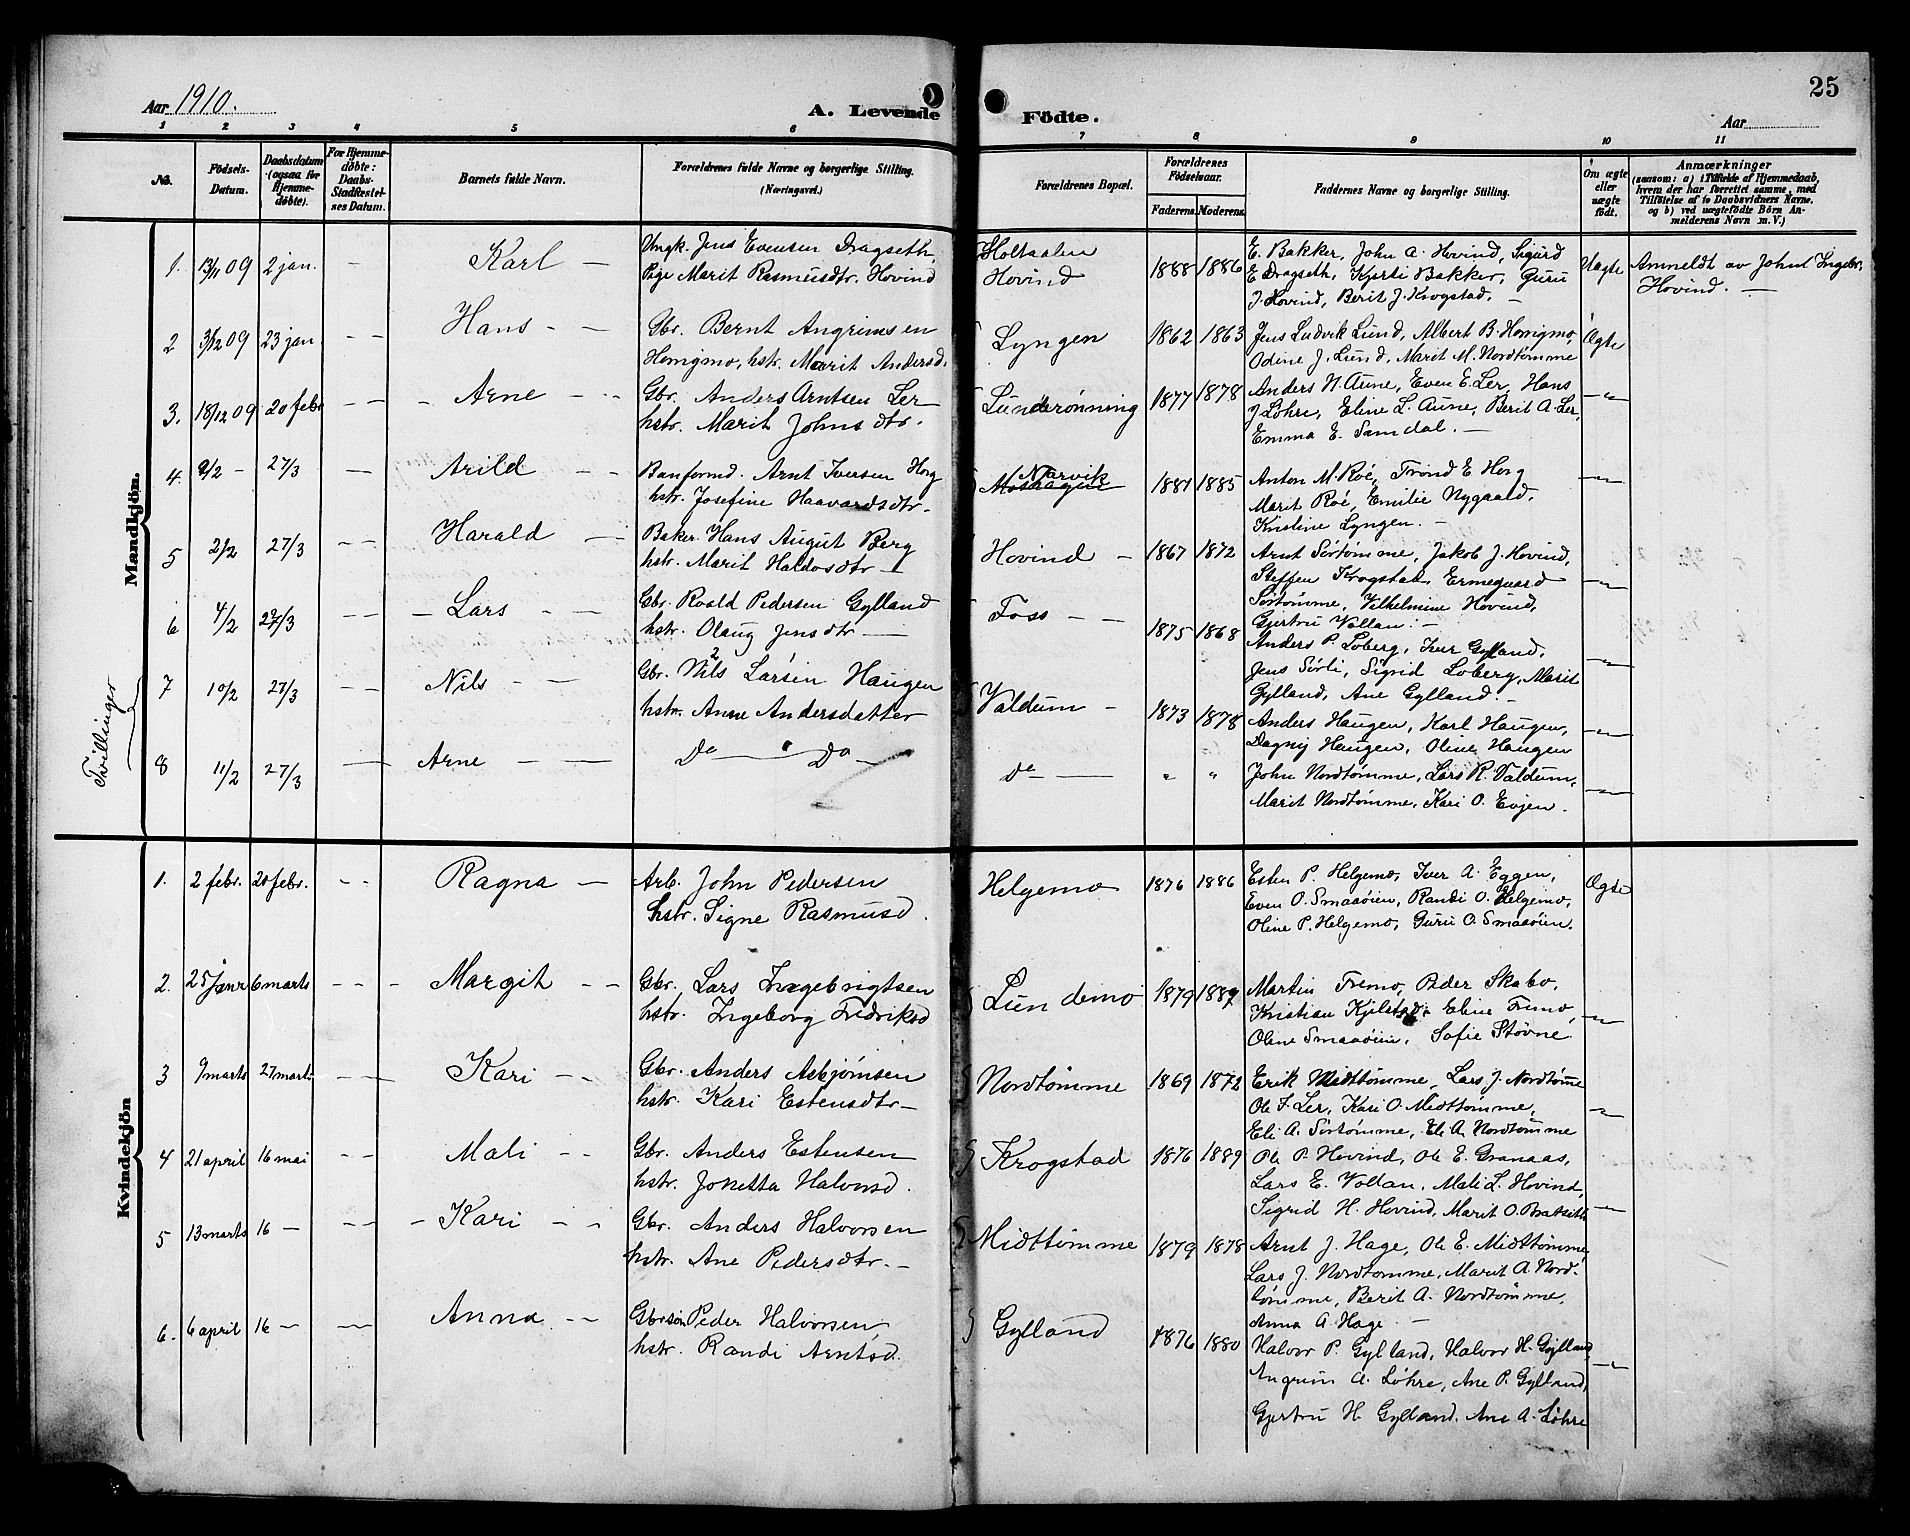 Aar 1910.
A. Levende Födte.
Aar
25
1 2 3 4 5 6 7 8 9 10 11
No.
Födsels-Datum.
Daabsdatum (ogsaa for Hjemmedöbte).
For Hjemmedöbte: Daabs-Stadfæstelses Datum.
Barnets fulde Navn.
Forældrenes fulde Navne og borgerlige Stilling. (Næringsvei.)
Forældrenes Bopæl.
Forældrenes Födselsaar.
Faderens. Moderens.
Faddernes Navne og borgerlige Stilling.
Om ægte eller uægte födt.
Anmærkninger
(saasom: a) i Tilfælde af Hjemmedaab,
hvem der har forrettet samme, med
Tilföielse af to Daabsvidners Navne,
og b) ved uægtefödte Börn An-
melderens Navn m. V.)
Mandkjön.
1. 13/11 09 2 jan. – Karl –
Ungk. Jens Evensen Dragseth,
Pige Marit Rasmusdtr. Hovind
Holtaalen
Hovind
1888 1886
E. Bakker, John A. Hovind, Sigurd
E Dragseth, Kjersti Bakker, Guru
J. Hovind, Berit J. Krogstad. –
Uægte
Anmeldt av John Ingebr.
Hovind. –
2 3/12 09 23 jan – – Hans – –
Gbr. Bernt Angrimsen
Honigmo, hstr. Marit Andersd.
Lyngen
1862 1863
Jens Ludvik Lund, Albert B. Honigmo,
Odine J. Lund, Marit M. Nordtømme
Ægte
3. 18/12 09 20 febr – – – Arne – –
Gbr. Anders Arntsen Ler
hstr. Marit Johnsdtr.
Lunderønning
1877 1878
Anders N. Aune, Even E. Ler, Hans
J Løhre, Eline L. Aune, Berit A. Ler,
Emma E. Samdal. –
–"–
4. 9/2 – 27/3 – Arild – –
Banformd. Arnt Iversen Horg
hstr. Josefine Haavardsdtr –
Narvik
1881 1885
Anton M. Roé, Trond E. Horg
Marit Roé, Emilie Nygaard,
Kristine Lyngen. –
–"–
5 2/2 27/3 – – Harald –
Baker Hans August Berg
hstr. Marit Haldosdtr –
Hovind –
1867 1872
Arnt Sørtømme, Jakob J. Hovind,
Steffen Krogstad, Ermeguard
Sørtømme, Vilhelmine Hovind,
Gjertru Vollan. –
–"–
6 4/2 27/3 – – – Lars – –
Gbr. Roald Pedersen Gylland
hstr. Olaug Jensdtr –
Foss – –
1875 1868
Anders P. Loberg, Iver Gylland,
Jens Sørli, Sigrid Loberg, Marit
Gylland, Ane Gylland. –
–"–
Tvillinger
7 10/2 27/3 – – Nils – –
Gbr. Nils Larsen Haugen
hstr. Anne Andersdatter
Valdum –
1873 1878
Anders Haugen, Karl Haugen,
Dagny Haugen, Oline Haugen
–"–
8 11/2 27/3 – Arne – –
Do – " – Do –
Do –
" "
John Nordtømme, Lars R. Valdum,
Marit Nordtømme, Kari O. Evjen.
–"–
Kvindekjön
1. 2 febr. 20 febr. – – Ragna –
Arb. John Pedersen
hstr. Signe Rasmusd.
Helgemo
1876 1886
Esten P. Helgemo, Iver A. Eggen,
Even O. Smaaøien, Randi O. Helgemo,
Oline P. Helgemo, Guru O. Smaaøien.
Ægte
2. 25 janr 6 marts – – – Margit – –
Gbr. Lars Ingebrigtsen
hstr. Ingeborg Fredriksd
Lundemo
1879 1887
Martin Fremo, Peder Skabo,
Kristian Kjelstad, Eline Fremo,
Oline Smaaøien, Sofie Støvne
–"–
3 9 marts 27 marts – – Kari – –
Gbr. Anders Asbjørnsen
hstr. Kari Estensdtr –
Nordtømme
1869 1872
Erik Midttømme, Lars J. Nordtømme
Ole J. Ler, Kari O. Midttømme,
Eli A. Sørtømme, Eli A. Nordtømme
–"–
4 21 april 16 mai – – Mali – –
Gbr. Anders Estensen
hstr. Jonetta Halvorsd.
Krogstad
1876 1889
Ole P. Hovind, Ole E. Granaas,
Lars E. Vollan, Mali L. Hovind,
Sigrid H. Hovind, Marit O. Bratseth
–"–
5 13 marts 16 – – – – Kari – –
Gbr. Anders Halvorsen
hstr. Ane Pedersdtr. –
Midttømme
1879 1878
Arnt J. Hage, Ole E. Midttømme,
Lars J. Nordtømme, Marit A. Nord-
tømme, Berit A. Nordtømme,
Anna A. Hage. –
6. 6 april 16 – – Anna – –
Gbrsøn Peder Halvorsen
hstr. Randi Arntsd.
Gylland
1876 1880
Halvor P. Gylland, Halvor H. Gylland,
Angrim A. Løhre, Ane P. Gylland,
Gjertru H. Gylland, Ane A. Løhre
–"–